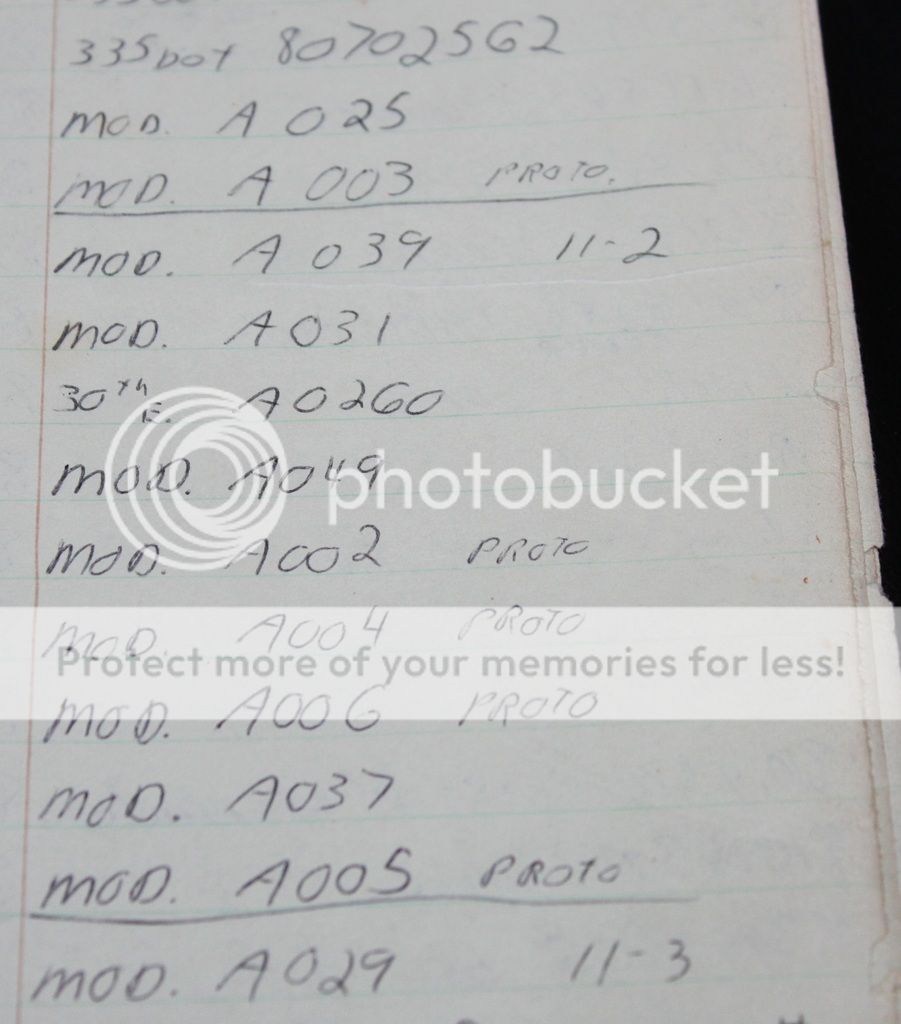 335 DOT 80702562
MOD. A 025
MOD. A 003 PROTO.
MOD. A 039 11-2
MOD. A031
30TH E. A0260
MOD. A049
photobucket
MOD. A002 PROTO
MOD. A004 PROTO
Protect more of your memories for less!
MOD. A006 PROTO
MOD. A037
MOD. A005 PROTO
MOD. A029 11-3